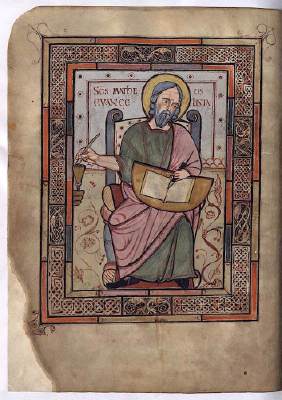 SCS MATHE US
EVANGE LISTA